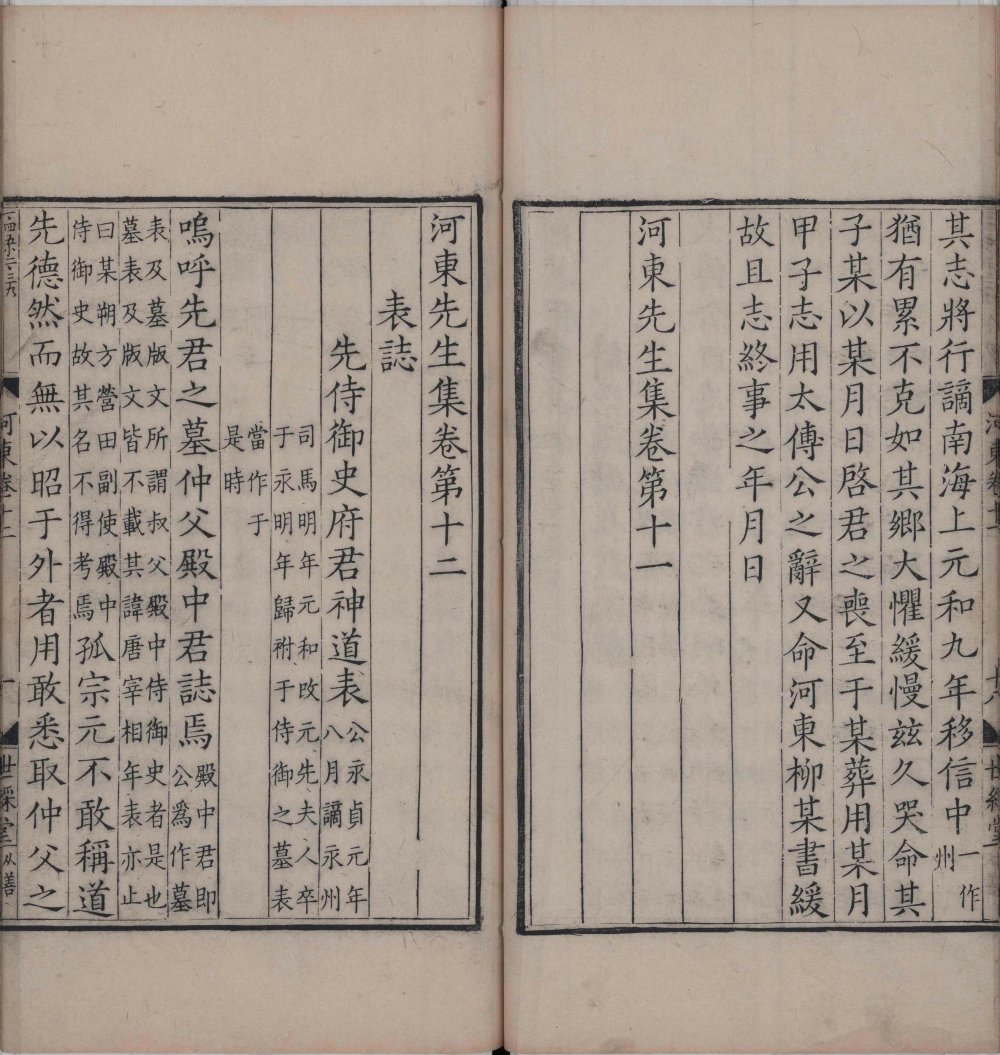 其志將行謫南海上元和九年移信中一作州
猶有累不克如其鄉大懼緩慢玆久哭命其
子某以某月日啓君之喪至于某葬用某月
甲子志用太傅公之辭又命河東柳某書緩
故且志終事之年月日
河東先生集卷第十一
河東先生集卷第十二
表誌
先侍御史府君神道表公永貞元年
八月謫永州
司馬明年元和改元先夫人卒
于永明年歸祔于侍御之墓表
當作于
是時
嗚呼先君之墓仲父殿中君誌焉殿中君即
公爲作墓
表及墓版文所謂叔父殿中侍御史者是也
墓表及版文皆不載其諱唐宰相年表亦止
曰某朔方營田副使殿中
侍御史故其名不得考焉孤宗元不敢稱道
先德然而無以昭于外者用敢悉取仲父之
河東卷十二
一
世綵堂
从善
河東卷十一
十八
世綵堂